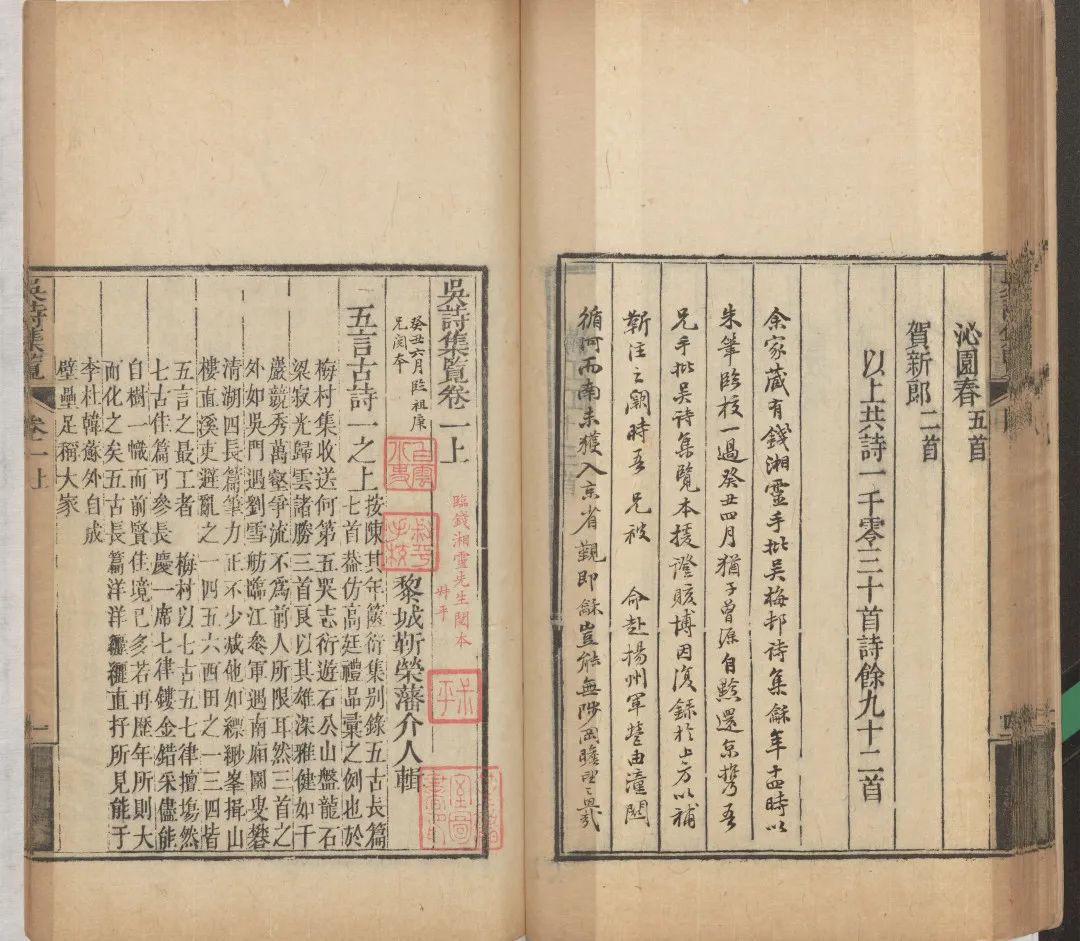 沁園春五首
賀新郎二首
以上共詩一千零三十首詩餘九十二首
余家藏有錢湘靈手批吳梅邨詩集龢年十四時以
朱筆臨校一過癸丑四月猶子曾源自黔還京携吾
兄手批吳詩集覽本援證賅博因復錄於上方以補
靳注之闕時吾兄被命赴揚州軍營由潼關
循河而南未獲入京省覲即龢豈能無陟岡瞻望之
吳詩集覽卷一上
癸丑六月臨祖庚
兄閱本
臨錢湘靈先生閱本
叔平
黎城靳榮藩介人輯
五言古詩一之上
按陳其年篋衍集别錄五古長篇
七首葢仿高廷禮品彙之例也於
梅村集收送何第五哭志衍遊石公山盤龍石
梁寂光歸雲諸勝三首良以其雄深雅健如千
巖競秀萬壑爭流不為前人所限耳然三首之
外如吳門遇劉雪舫臨江參軍遇南廂園叟礬
清湖四長篇筆力正不少减他如縹緲峯揖山
樓直溪吏避亂之一四五六西田之一三四皆
五言之最工者　梅村以七古五七律擅塲然
七古佳篇可參長慶一席七律鏤金錯采儘能
自樹一幟而前賢佳境已多若再歴年所則大
而化之矣五古長篇洋洋纚纚直抒所見能于
李杜韓蘇外自成
壁壘足稱大家
吳詩集覽　卷一上　一